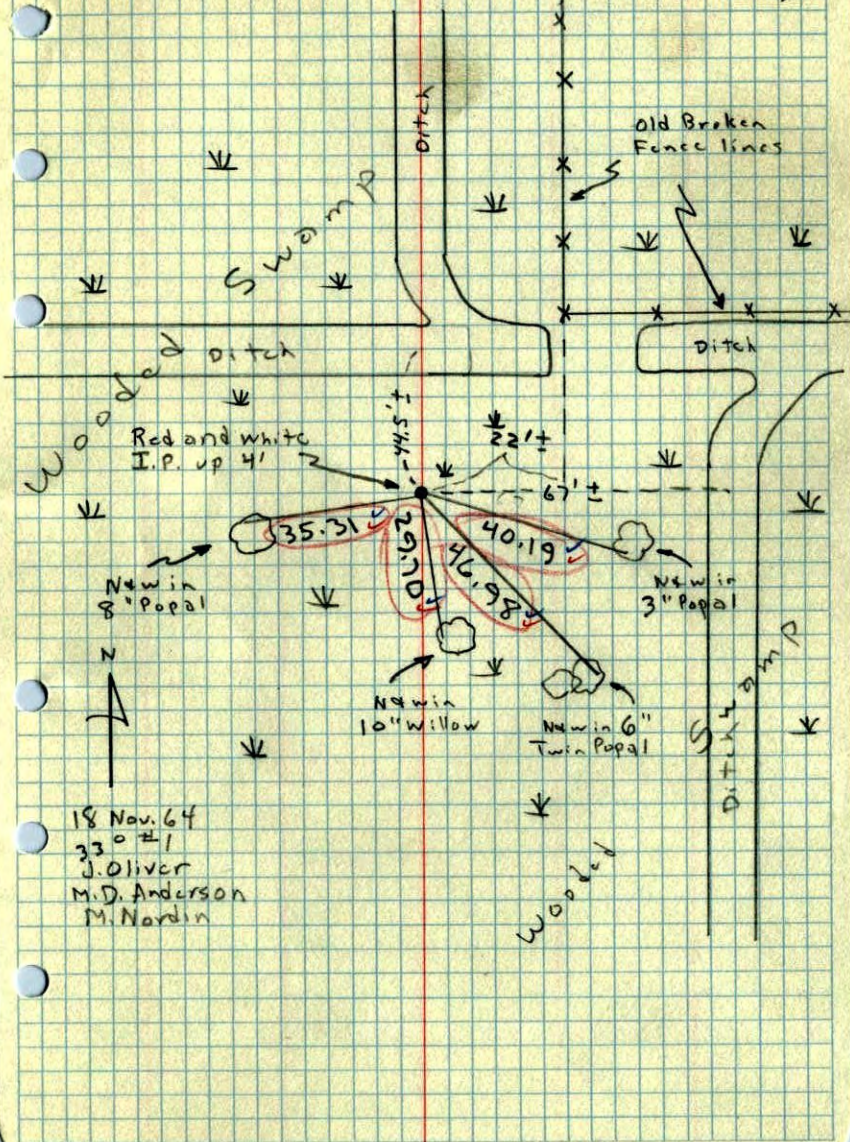 Ditch
Old Broken
Fence lines
Swamp
Wooded
Ditch
Ditch
44.5'±
Red and white
I.P. up 4'
22'±
67'±
35.31
29.70
46.98
40.19
N&W in
8" Popal
N&W in
3" Popal
N
N&W in
10" Willow
N&W in 6"
Twin Popal
Swamp
Ditch
Wooded
18 Nov. 64
33° #1
J. Oliver
M.D. Anderson
M. Nordin